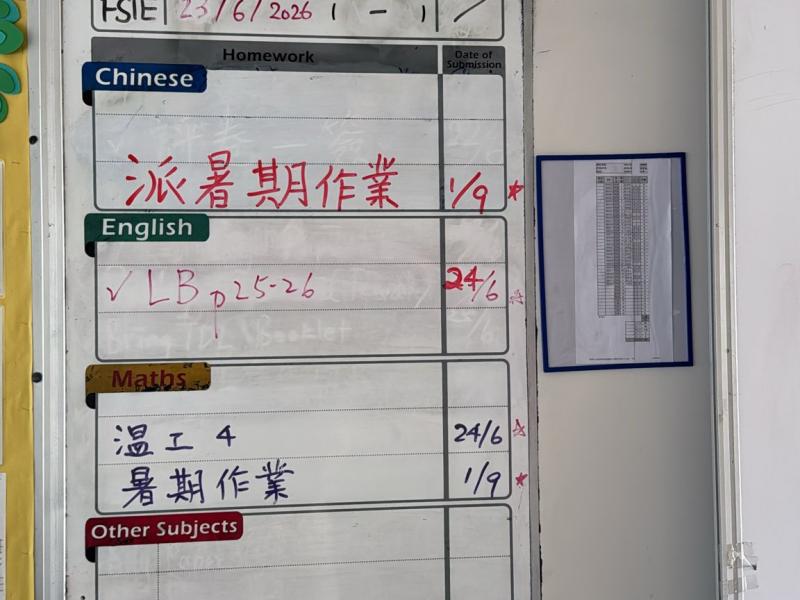 FSIE 23/6/2026 ( 一 )
Homework Date of Submission
Chinese
派暑期作業 1/9 *
English
✓ LB p25-26 24/6 ☆
Bring TDL Booklet
Maths
温工 4 24/6 ☆
暑期作業 1/9 *
Other Subjects